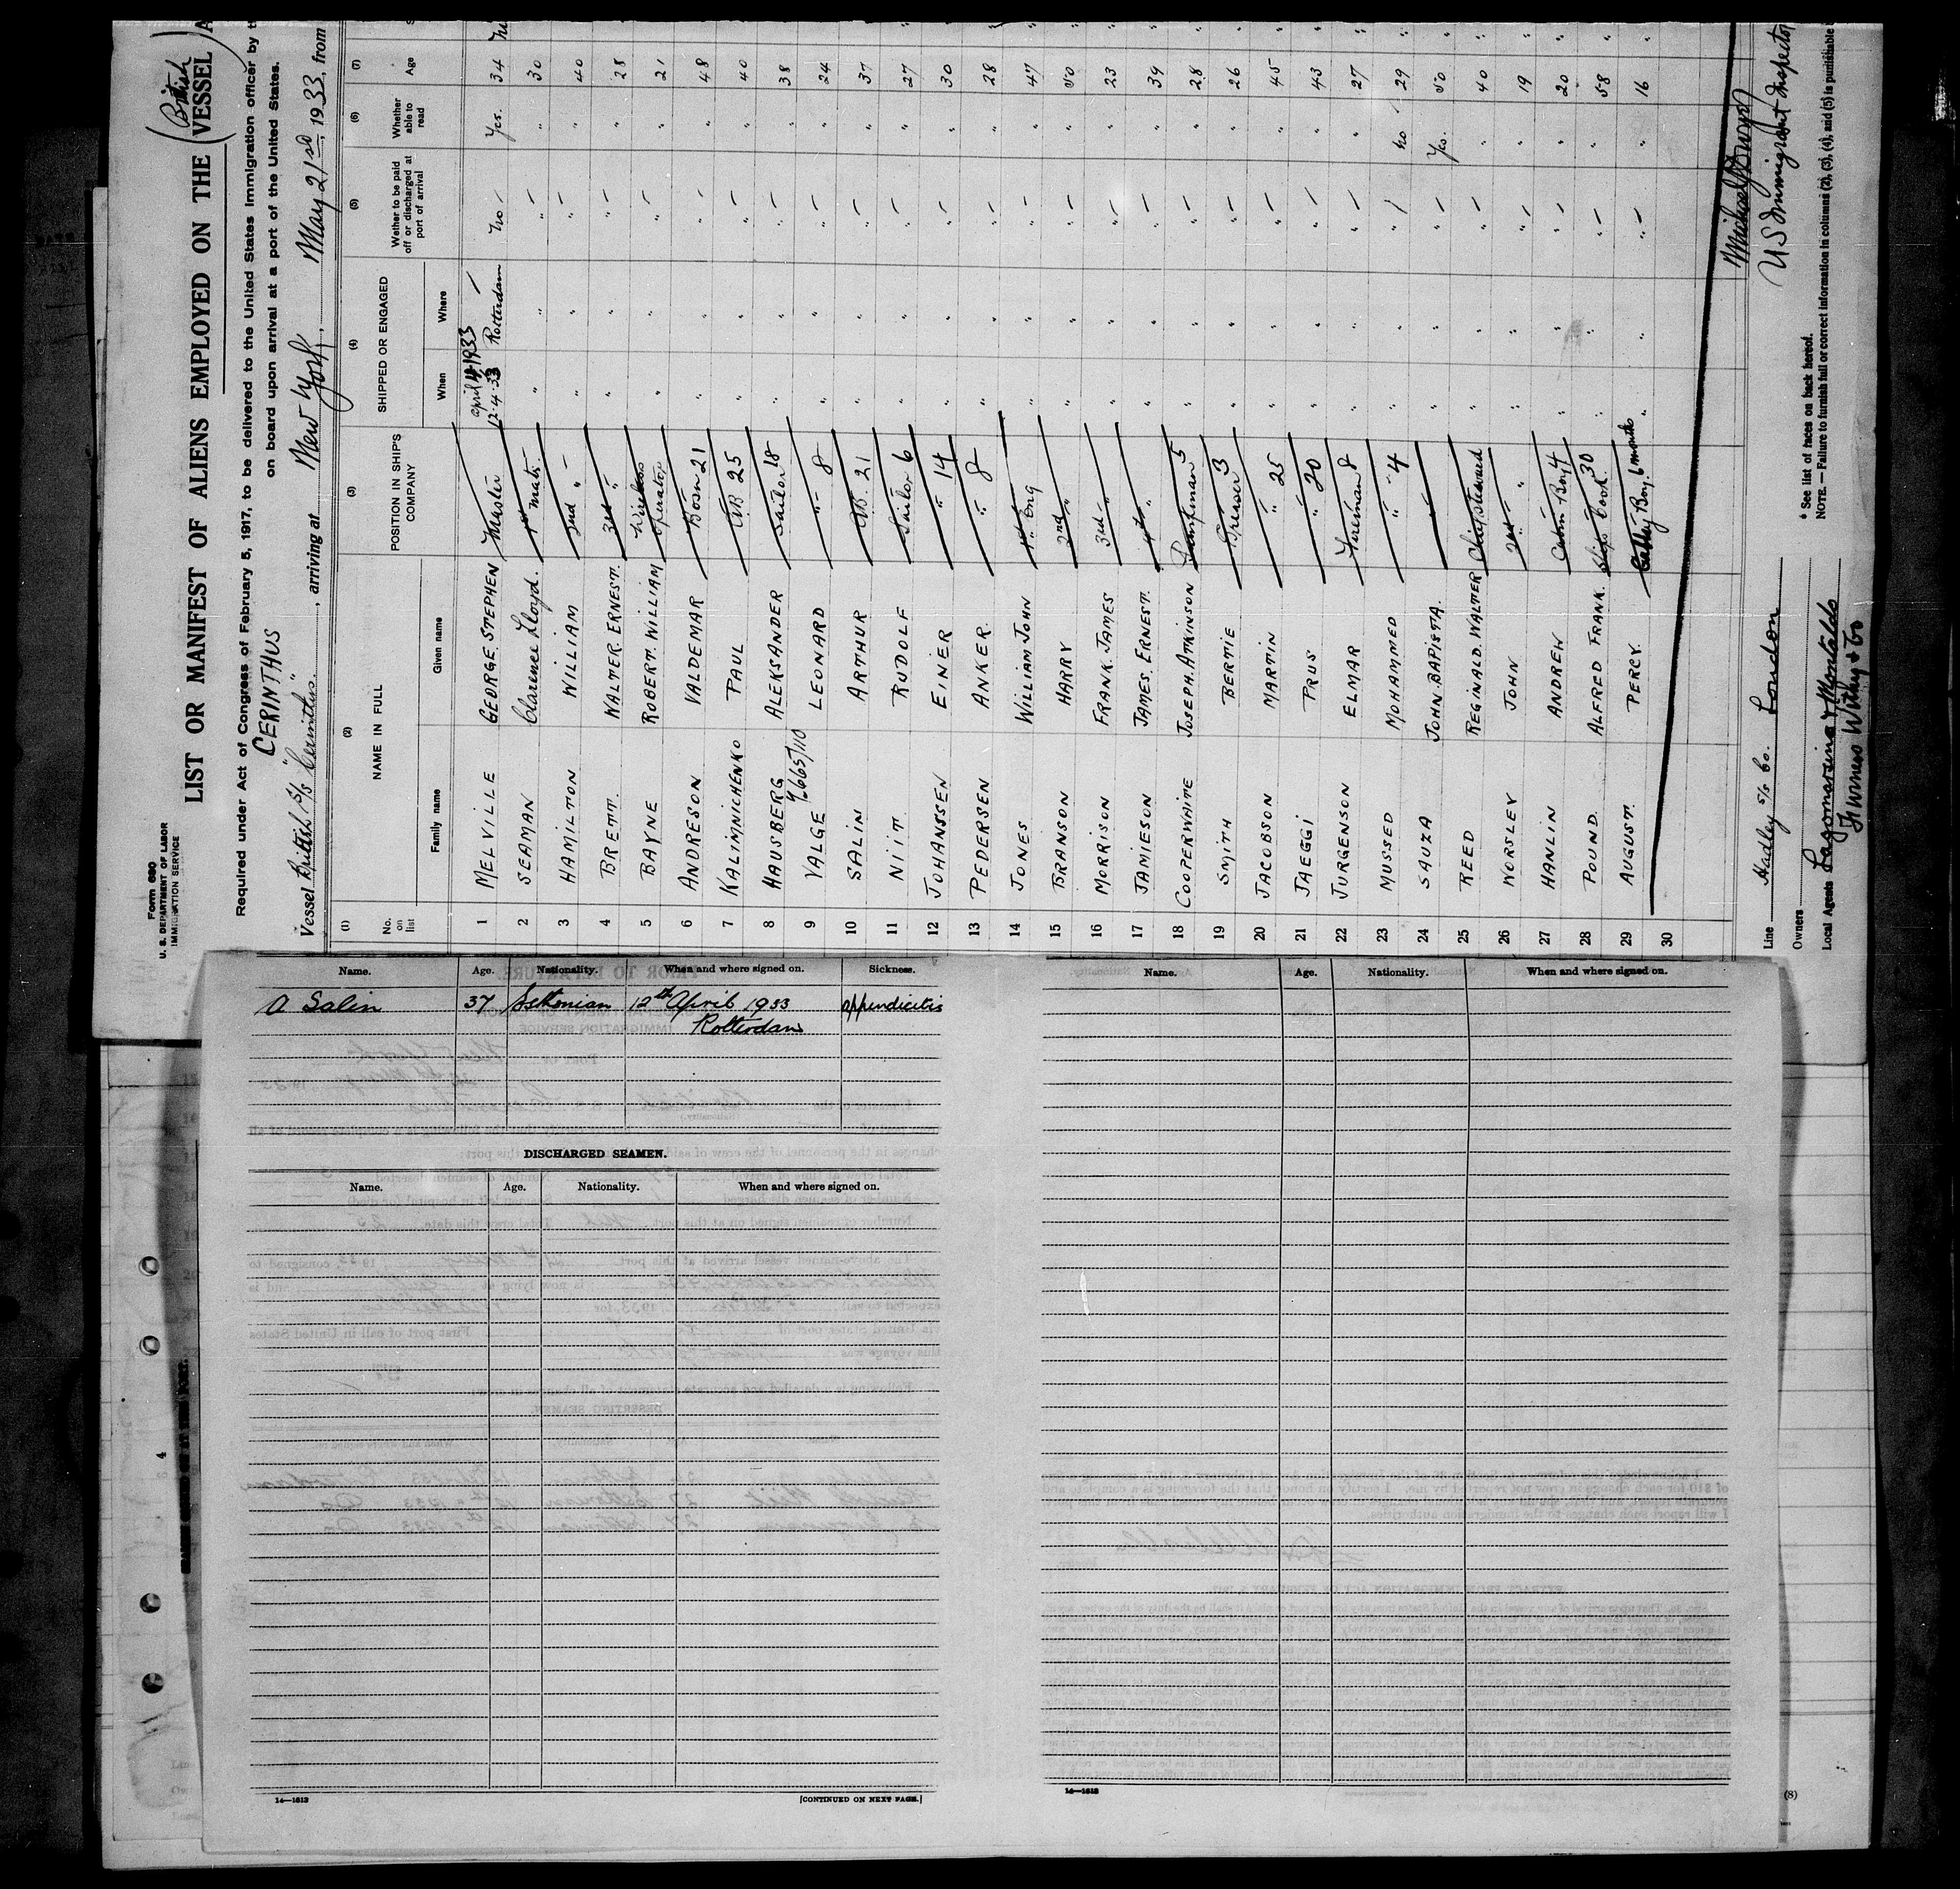 Form 680
U. S. DEPARTMENT OF LABOR
IMMIGRATION SERVICE
LIST OR MANIFEST OF ALIENS EMPLOYED ON THE (British VESSEL)
Required under Act of Congress of February 5, 1917, to be delivered to the United States immigration officer by
on board upon arrival at a port of the United States.
CERINTHUS
Vessel British S/S "Cerinthus", arriving at New York, May 21st, 1933, from
(1) (2) (3) (4) (5) (6) (7)
No. on list NAME IN FULL POSITION IN SHIP'S COMPANY SHIPPED OR ENGAGED Wether to be paid off or discharged at port of arrival Whether able to read Age
Family name Given name When Where
April 12 1933
1 MELVILLE GEORGE STEPHEN Master 12.4.33 Rotterdam no Yes. 34
2 SEAMAN Clarence Lloyd. 1st Mate. " " " " 30
3 HAMILTON WILLIAM 2nd " " " " " 40
4 BRETT. WALTER. ERNEST. 3rd " " " " " 28
5 BAYNE ROBERT. WILLIAM Wireless Operator " " " " 21
6 ANDRESON VALDEMAR Bosn 21 " " " " 48
7 KALIMNICHENKO PAUL AB 25 " " " " 40
8 HAUSBERG ALEKSANDER Sailor 18 " " " " 38
9 VALGE 9665/110 LEONARD " 8 " " " " 24
10 SALIN ARTHUR AB. 21 " " " " 37
11 NIIT RUDOLF Sailor 6 " " " " 27
12 JOHANSSEN EINER " 14 " " " " 30
13 PEDERSEN ANKER. " 8 " " " " 28
14 JONES WILLIAM JOHN 1st Eng " " " " 47
15 BRANSON HARRY 2nd " " " " " 50
16 MORRISON FRANK. JAMES 3rd " " " " " 23
17 JAMIESON JAMES. ERNEST. 4th " " " " " 39
18 COOPERWAITE JOSEPH. ATKINSON Pumpman 5 " " " " 28
19 SMITH BERTIE Greaser 3 " " " " 26
20 JACOBSON MARTIN " 25 " " " " 45
21 JAEGGI PRUS " 20 " " " " 43
22 JURGENSON ELMAR Fireman 8 " " " " 27
23 MUSSED MOHAMMED " 4 " " " no 29
24 SAUZA JOHN. BAPISTA. " " " " Yes. 50
25 REED REGINALD. WALTER Chief Steward " " " " 40
26 WORSLEY JOHN 2nd " " " " " 19
27 HANLIN ANDREW Cabin Boy 4 " " " " 20
28 POUND. ALFRED FRANK. Ships Cook 30 " " " " 58
29 AUGUST. PERCY. Galley Boy. 6 months " " " " 16
30
Line Hadley S/S Co. London
Owners
Local Agents Lagomarsino & Montaldo
Furness Withy & Co
U S Immigrant Inspector
* See list of faces on back hereof.
NOTE.—Failure to furnish full or correct information in columns (2), (3), (4), and (5) is punishable
Name. Age. Nationality. When and where signed on. Sickness.
A Salin 37 Esthonian 12th April 1933 appendicitis
Rotterdam
DISCHARGED SEAMEN.
Name. Age. Nationality. When and where signed on.
14—1613
[CONTINUED ON NEXT PAGE.]
Name. Age. Nationality. When and where signed on.
14—1613
4
(8)